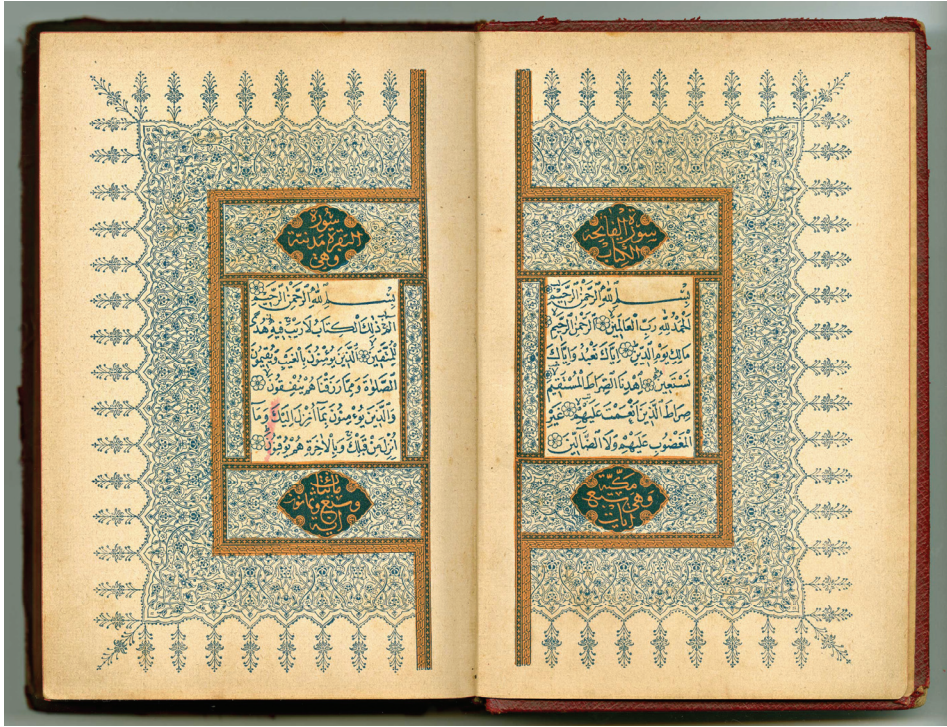 سورة الفاتحة
الكتاب
بسم الله الرحمن الرحيم
الحمد لله رب العالمين الرحمن الرحيم
مالك يوم الدين اياك نعبد واياك
نستعين اهدنا الصراط المستقيم
صراط الذين انعمت عليهم غير
المغضوب عليهم ولا الضالين
مكية
وهي سبع
ايات
سورة
البقرة مدنية
وهي
بسم الله الرحمن الرحيم
الم ذلك الكتاب لا ريب فيه هدى
للمتقين الذين يؤمنون بالغيب ويقيمون
الصلوة ومما رزقناهم ينفقون
والذين يؤمنون بما انزل اليك وما
انزل من قبلك وبالاخرة هم يوقنون
مائتا
وسبع وثمانون
اية